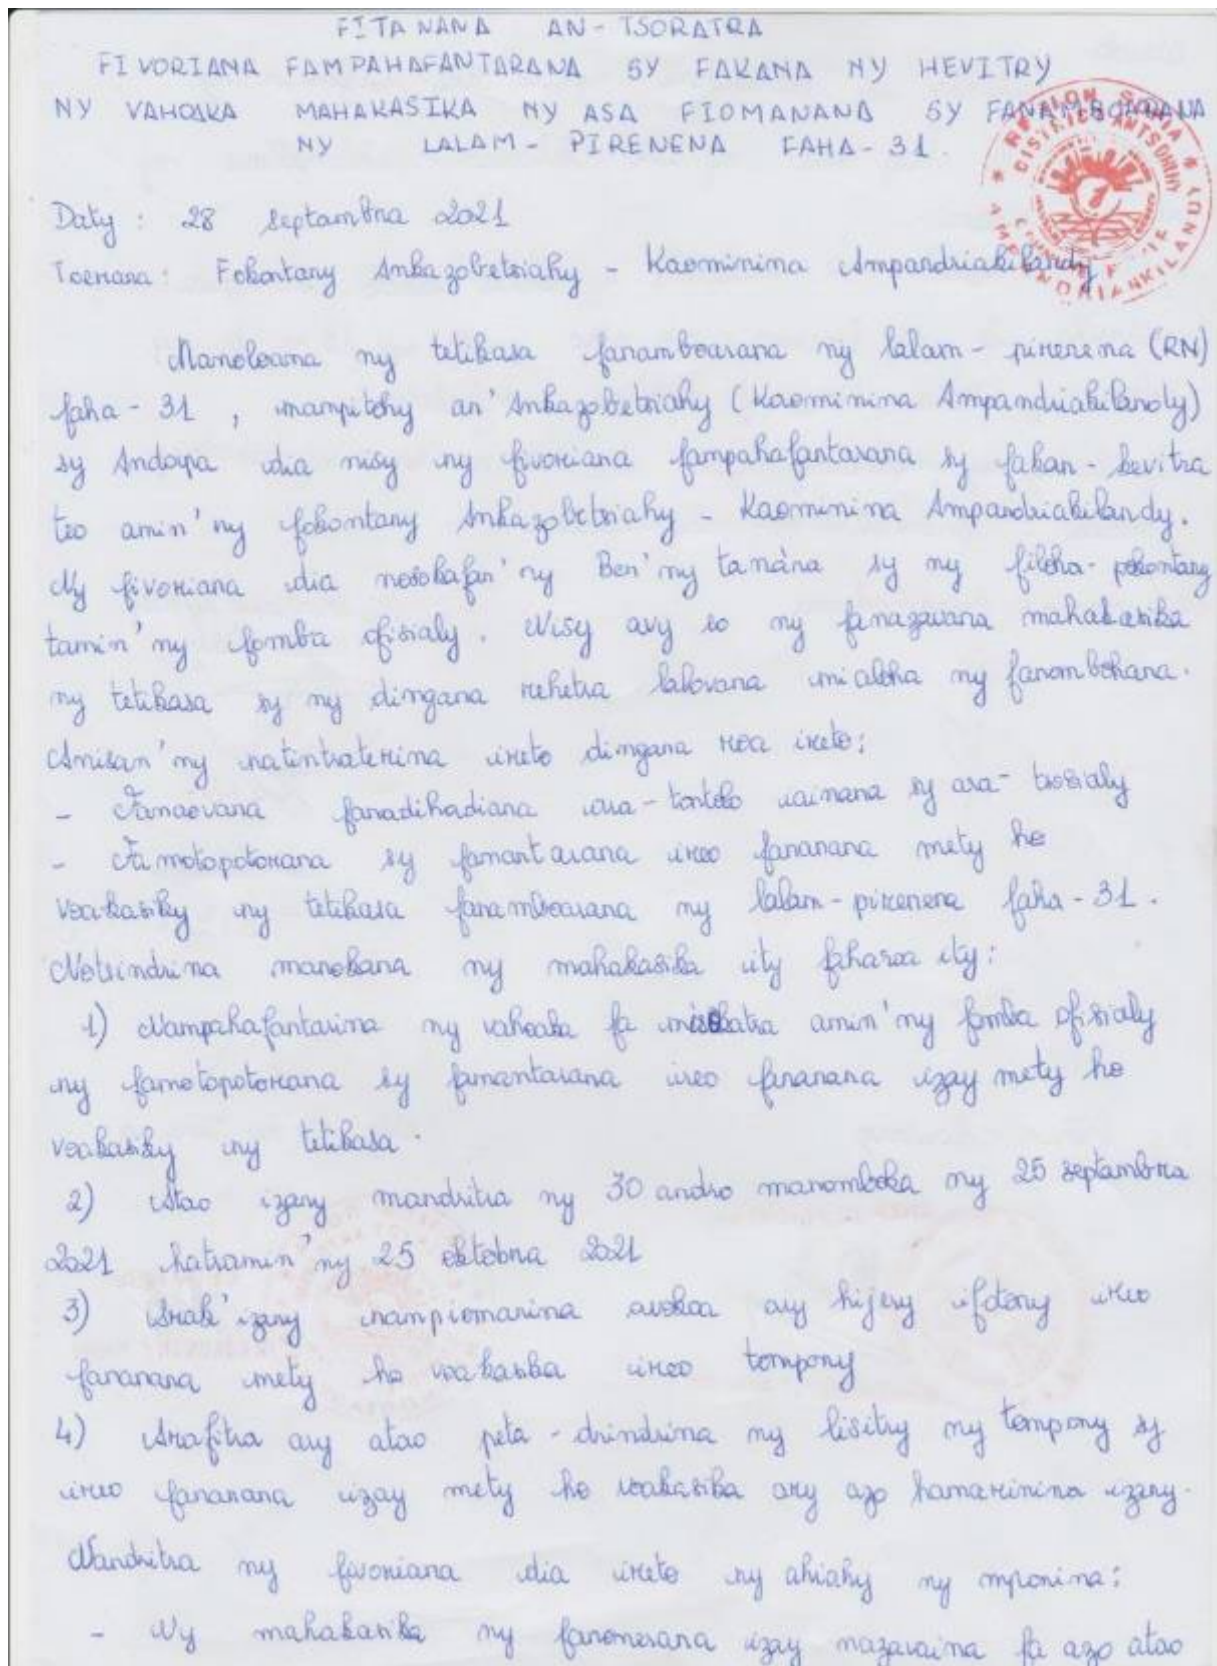 FITANANA AN-TSORATRA
FIVORIANA FAMPAHAFANTARANA SY FAKANA NY HEVITRY
NY VAHOAKA MAHAKASIKA NY ASA FIOMANANA SY FANAMBOARANA
NY LALAM-PIRENENA FAHA-31.
REGION SOFIA
DISTRICT ANTSOHIHY
Daty : 28 septambra 2021
Toerana : Fokontany Ankazobetsiahy - Kaominina Ampandriakilandy
Manoloana ny tetikasa fanamboarana ny lalam-pirenena (RN)
faha-31, mampitohy an'Ankazobetsiahy (Kaominina Ampandriakilandy)
sy Andoapa dia nisy ny fivoriana fampahafantarana sy fakan-kevitra
teo amin'ny fokontany Ankazobetsiahy - Kaominina Ampandriakilandy.
Ny fivoriana dia nosokafan'ny Ben'ny tanàna sy ny filoha-pokontany
tamin'ny fomba ofisialy. Nisy avy eo ny fanazavana mahakasika
ny tetikasa sy ny dingana rehetra lalovana mialoha ny fanombohana.
Anisan'ny natintraterina ireto dingana roa ireto:
- Fanaovana fanadihadiana ara-tontolo iainana sy ara-tsosialy
- Famotopotorana sy famantarana ireo fananana mety ho
voakasiky ny tetikasa fanamboarana ny lalam-pirenena faha-31.
Notsindrina manokana ny mahakasika ity faharoa ity:
1) Nampahafantarina ny vahoaka fa misokatra amin'ny fomba ofisialy
ny famotopotorana sy famantarana ireo fananana izay mety ho
voakasiky ny tetikasa.
2) Atao izany mandritra ny 30 andro manomboka ny 25 septambra
2021 hatramin'ny 25 oktobra 2021
3) Arak'izany nampiomanina avokoa ary hijery ifotony ireo
fananana mety ho voakasika ireo tompony
4) Arafitra ary atao peta-drindrina ny lisitry ny tompony sy
ireo fananana izay mety ho voakasika ary azo hamarinina izany.
Nandritra ny fivoriana dia ireto ny ahiahy ny mponina:
- Ny mahakasika ny fanonerana izay nazavaina fa azo atao